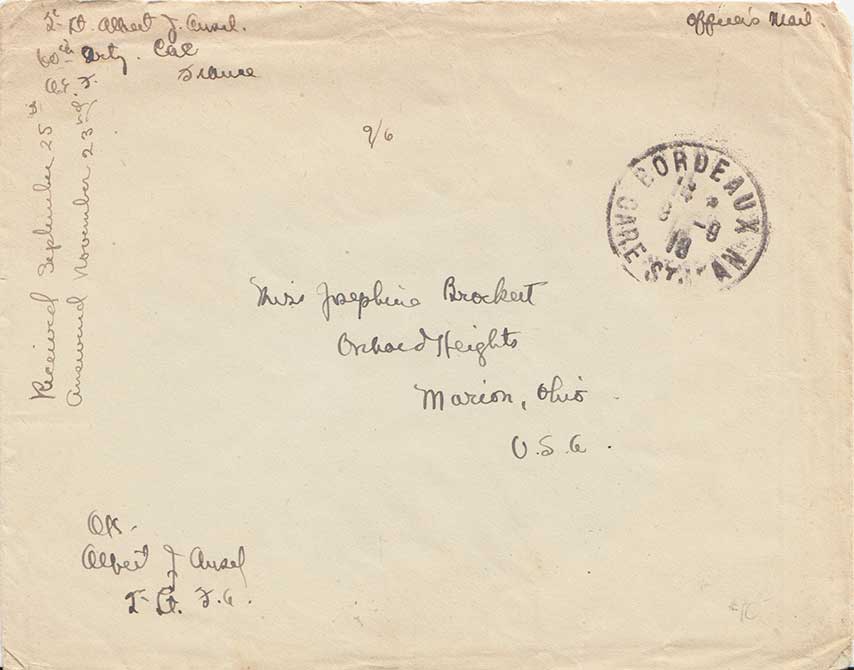 2- Lt. Albert J. Ansel.
Officer's Mail.
60th Arty. CAC
A. E. F.
France
Received September 25th
Answered November 23rd
9/6
BORDEAUX
GARE ST-JEAN
18
Miss Josephine Brockett
Orchard Heights
Marion, Ohio
U.S.A.
OK.
Albert J Ansel
2- Lt. F.A.